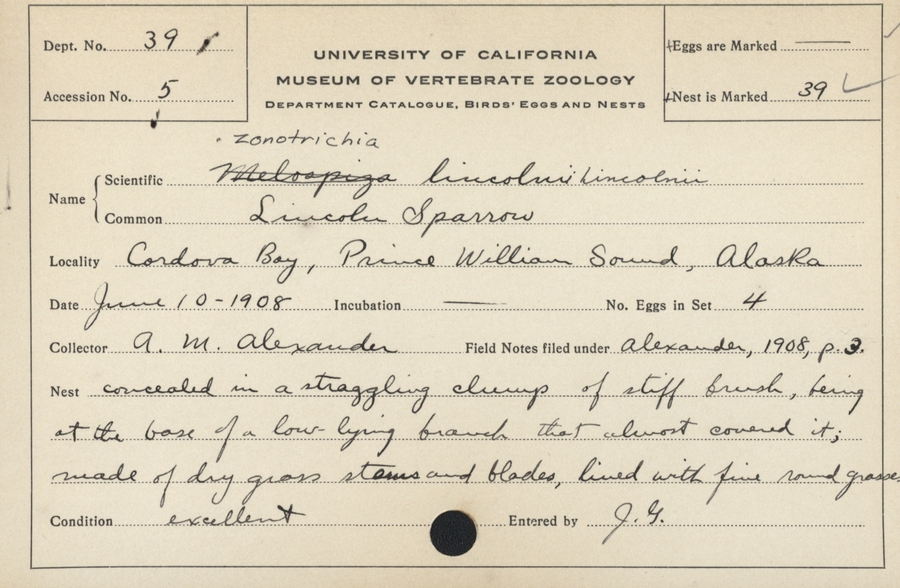 Dept. No. 39
Accession No. 5
UNIVERSITY OF CALIFORNIA
MUSEUM OF VERTEBRATE ZOOLOGY
DEPARTMENT CATALOGUE, BIRDS' EGGS AND NESTS
Eggs are Marked —
Nest is Marked 39 ✓
zonotrichia
Name
Scientific Melospiza lincolnii lincolnii
Common Lincoln Sparrow
Locality Cordova Bay, Prince William Sound, Alaska
Date June 10-1908 Incubation — No. Eggs in Set 4
Collector A. M. Alexander Field Notes filed under Alexander, 1908, p. 3.
Nest concealed in a straggling clump of stiff brush, being
at the base of a low-lying branch that almost covered it;
made of dry grass stems and blades, lined with fine round grasses
Condition excellent Entered by J. G.